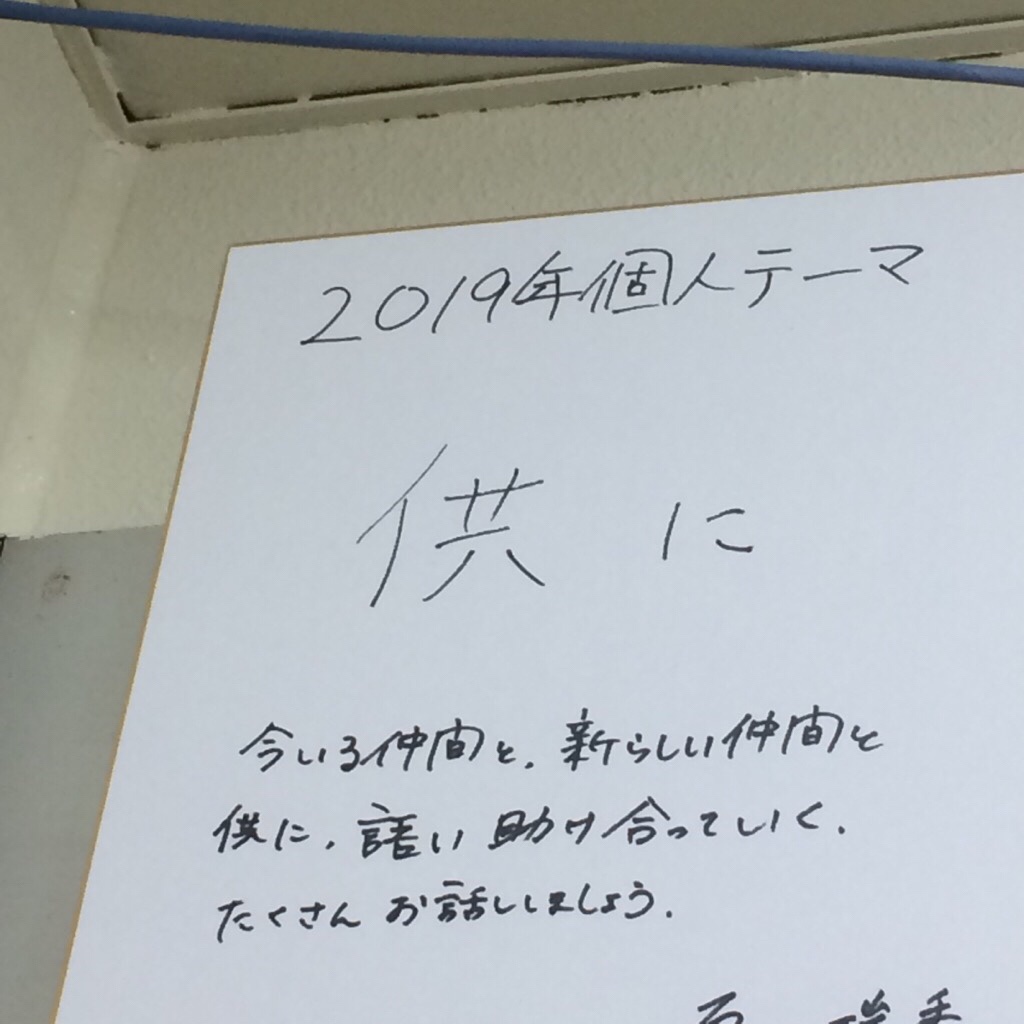 2019年個人テーマ
供に
今いる仲間と、新らしい仲間と
供に、語い助け合っていく.
たくさんお話ししましょう.